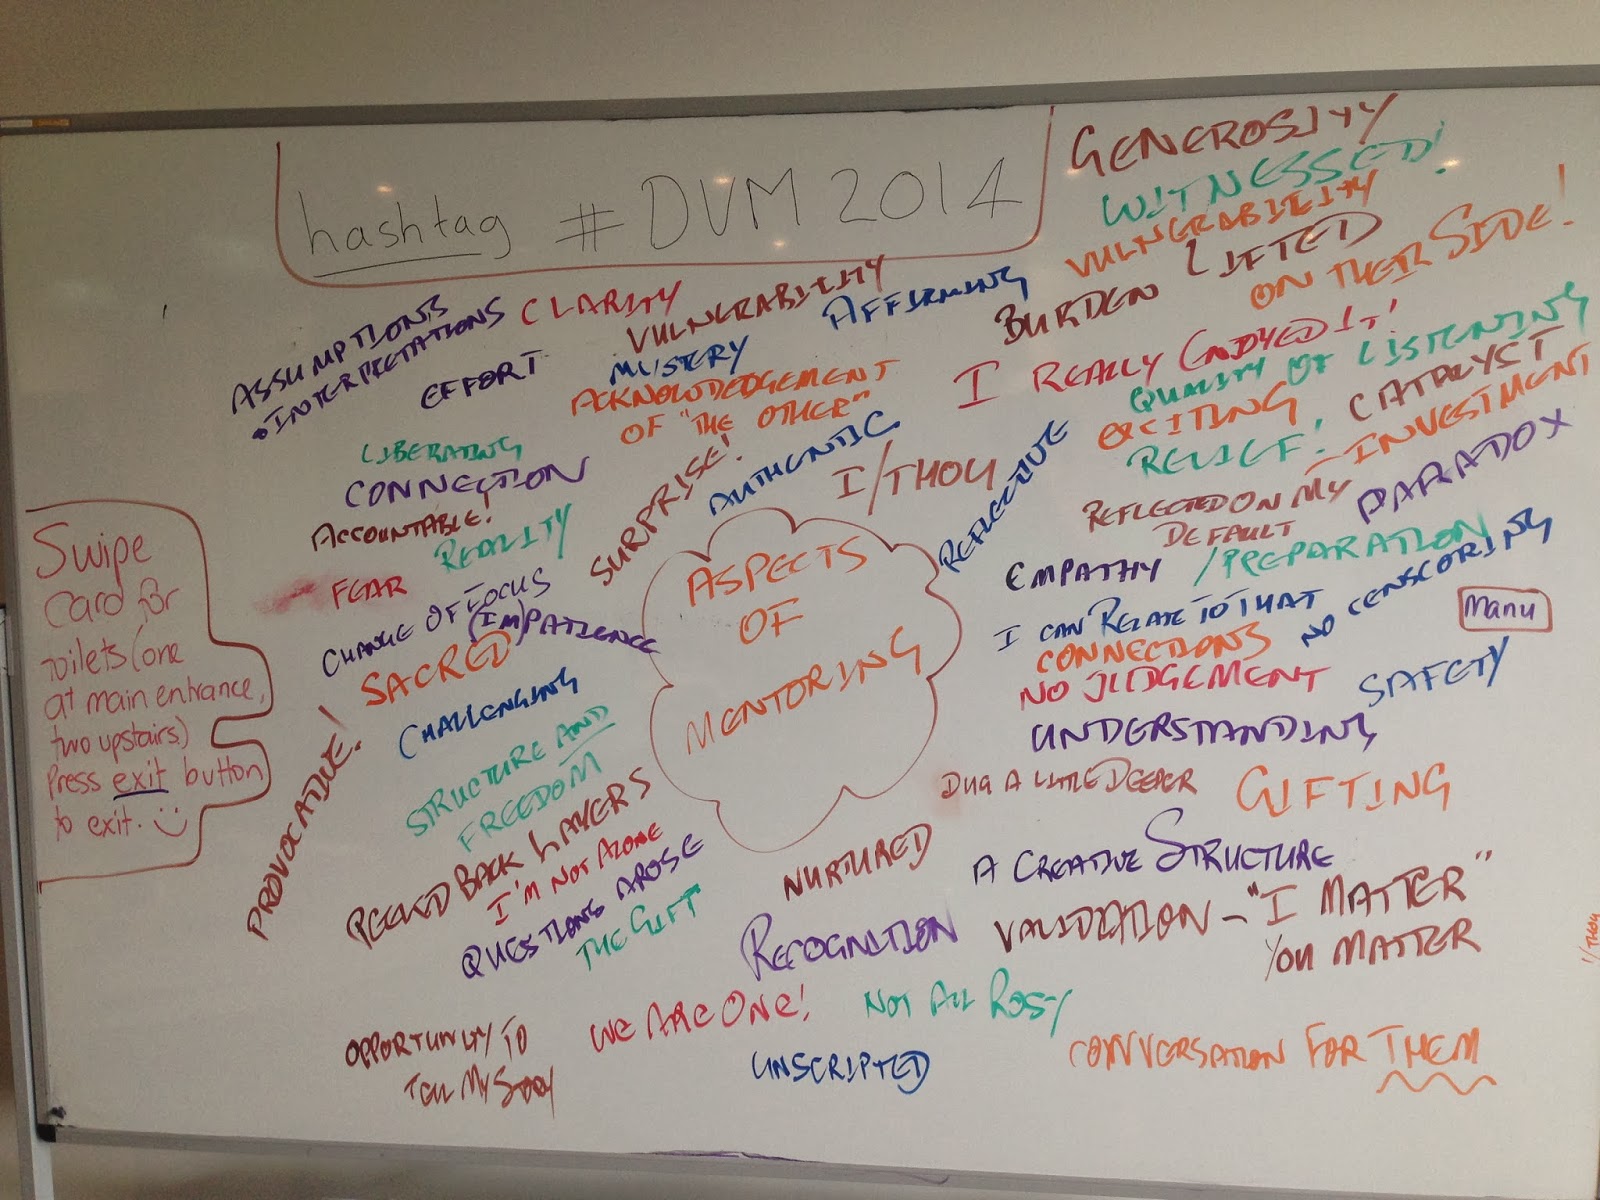 hashtag #DVM 2014
GENEROSITY
WITNESSED!
VULNERABILITY
BURDEN LIFTED
ON THEIR SIDE!
ASSUMPTIONS
• INTERPRETATIONS
CLARITY
VULNERABILITY
AFFIRMING
EFFORT
MYSTERY
ACKNOWLEDGEMENT
OF "THE OTHER"
I REALLY ENJOYED IT!
QUALITY OF LISTENING
EXCITING
CATALYST
RELIEF!
INVESTMENT
LIBERATING
CONNECTION
SURPRISE!
AUTHENTIC
I/THOU
REFLECTIVE
REFLECTED ON MY
DEFAULT
PARADOX
ACCOUNTABLE!
REALITY
FEAR
CHANGE OF FOCUS
(IM)PATIENCE
SACRED
ASPECTS
OF
MENTORING
EMPATHY
/PREPARATION
I CAN RELATE TO THAT
NO CENSCORING
CONNECTIONS
NO JUDGEMENT
Manu
SAFETY
UNDERSTANDING
Swipe
Card for
toilets (one
at main entrance,
two upstairs.)
Press exit button
to exit.
CHALLENGING
PROVOCATIVE!
STRUCTURE AND
FREEDOM
DUG A LITTLE DEEPER
GIFTING
PEELED BACK LAYERS
I'M NOT ALONE
QUESTIONS AROSE
THE GIFT
NURTURED
A CREATIVE STRUCTURE
RECOGNITION
VALIDATION - "I MATTER"
YOU MATTER
I/THOU
OPPORTUNITY TO
TELL MY STORY
WE ARE ONE!
NOT ALL ROSY
UNSCRIPTED
CONVERSATION FOR THEM